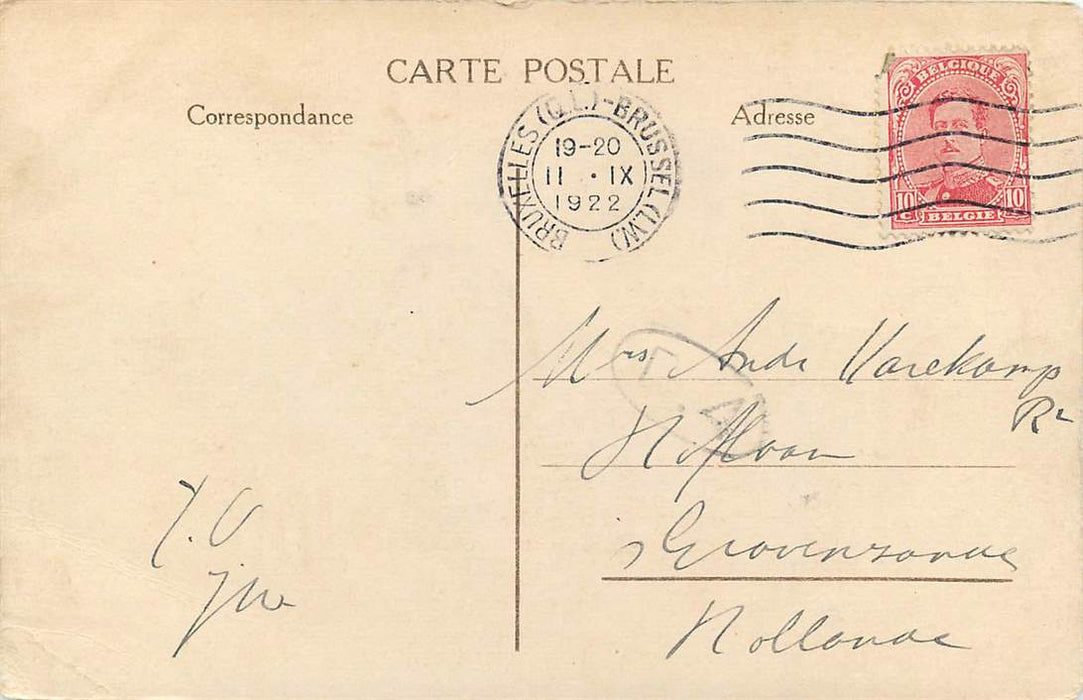 CARTE POSTALE
Correspondance
Adresse
BRUXELLES (Q.L.)-BRUSSEL (L.W.)
19-20
11 · IX
1922
BELGIQUE
10 10
BELGIE
Mrs Andr Varekamp
's Gravenzande
Hollande